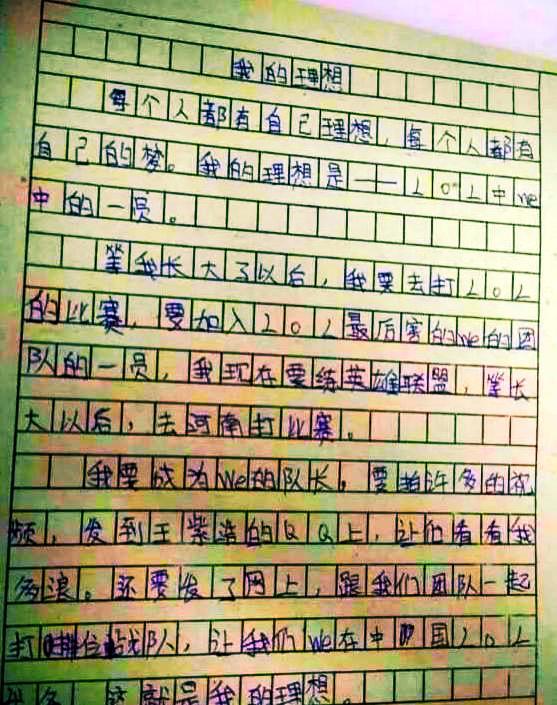 我的理想
每个人都有自己理想，每个人都有
自己的梦。我的理想是——LOL中we
中的一员。
等我长大了以后，我要去打LOL
的比赛，要加入LOL最后害的we的团
队的一员，我现在要练英雄联盟，等长
大以后，去河南打比赛。
我要成为we的队长，要拍许多的视
频，发到王紫浩的QQ上，让他看看我
多浪。还要发了网上，跟我们团队一起
打排位战队，让我们we在中国LOL
这就是我的理想。